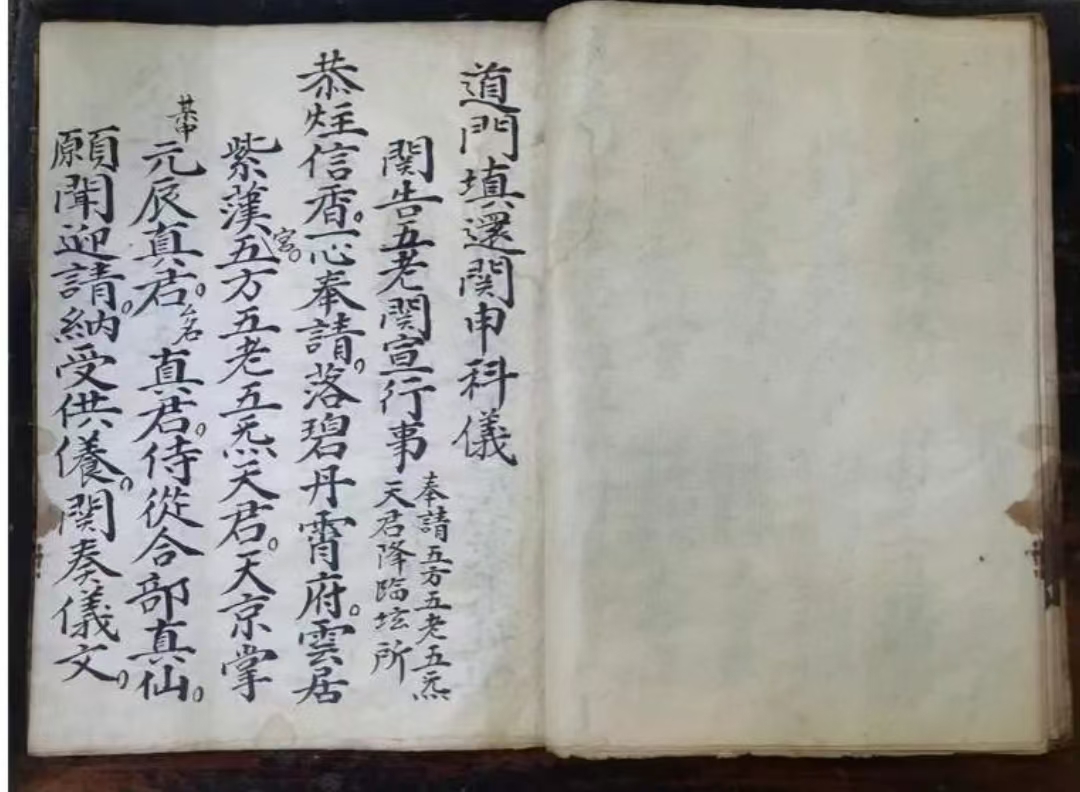 道門填還関申科儀
関告五老関宣行事
奉請五方五老五炁
天君降臨坛所
恭炷信香。一心奉請。落碧丹霄府。雲居
紫蕅五方五老五炁天君。天京掌
宮。
元辰真君。厶名真君。侍從合部真仙。
願聞迎請。納受供儀。関奏儀文。